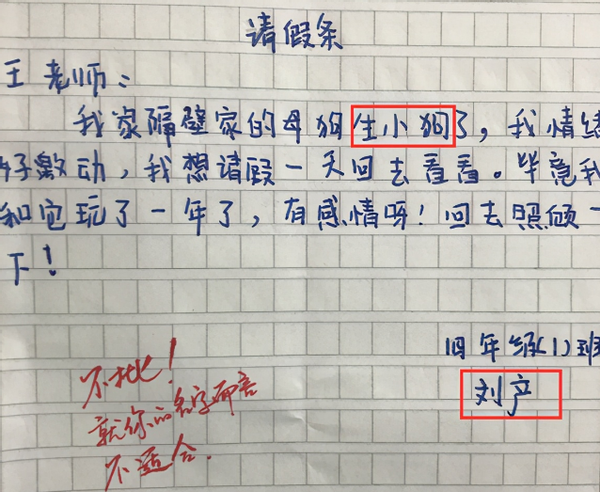 请假条
王老师：
我家隔壁家的母狗生小狗了，我情绪
好激动，我想请假一天回去看看。毕竟我
和它玩了一年了，有感情呀！回去照顾一
下！
四年级(1)班
刘产
不批！
就你的名字而言
不适合.